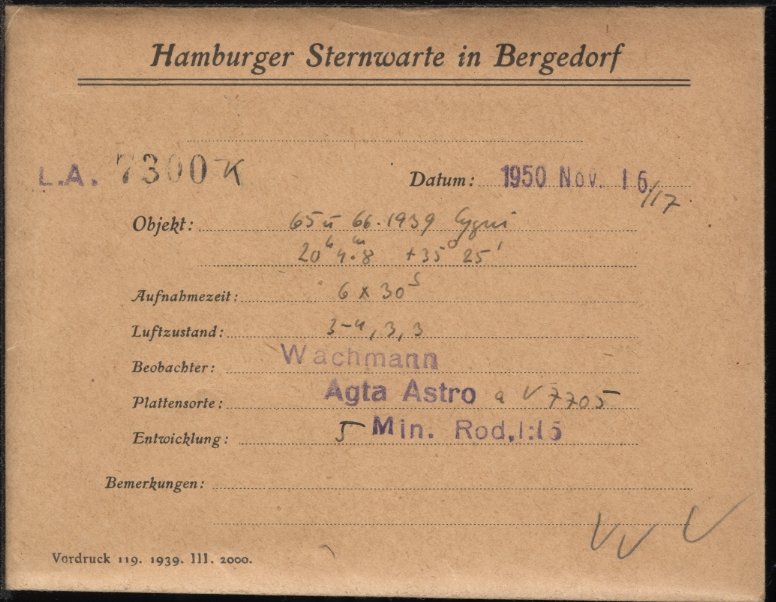 Hamburger Sternwarte in Bergedorf
L.A. 7300 K
Datum: 1950 Nov. 16./17.
Objekt: 65 u 66.1939 Cygni
20h 4m.8 +35° 25'
Aufnahmezeit: 6 x 30s
Luftzustand: 3-4, 3, 3
Beobachter: Wachmann
Plattensorte: Agta Astro a V 7705
Entwicklung: 5 Min. Rod. 1:15
Bemerkungen:
Vordruck 119. 1939. III. 2000.